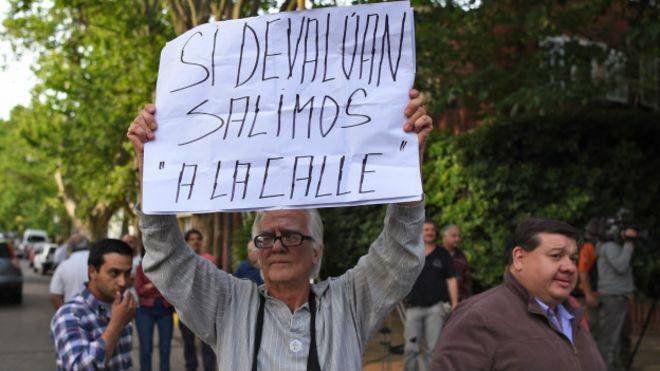 SÍ DEVALÚAN
SALIMOS
"A LA CALLE"